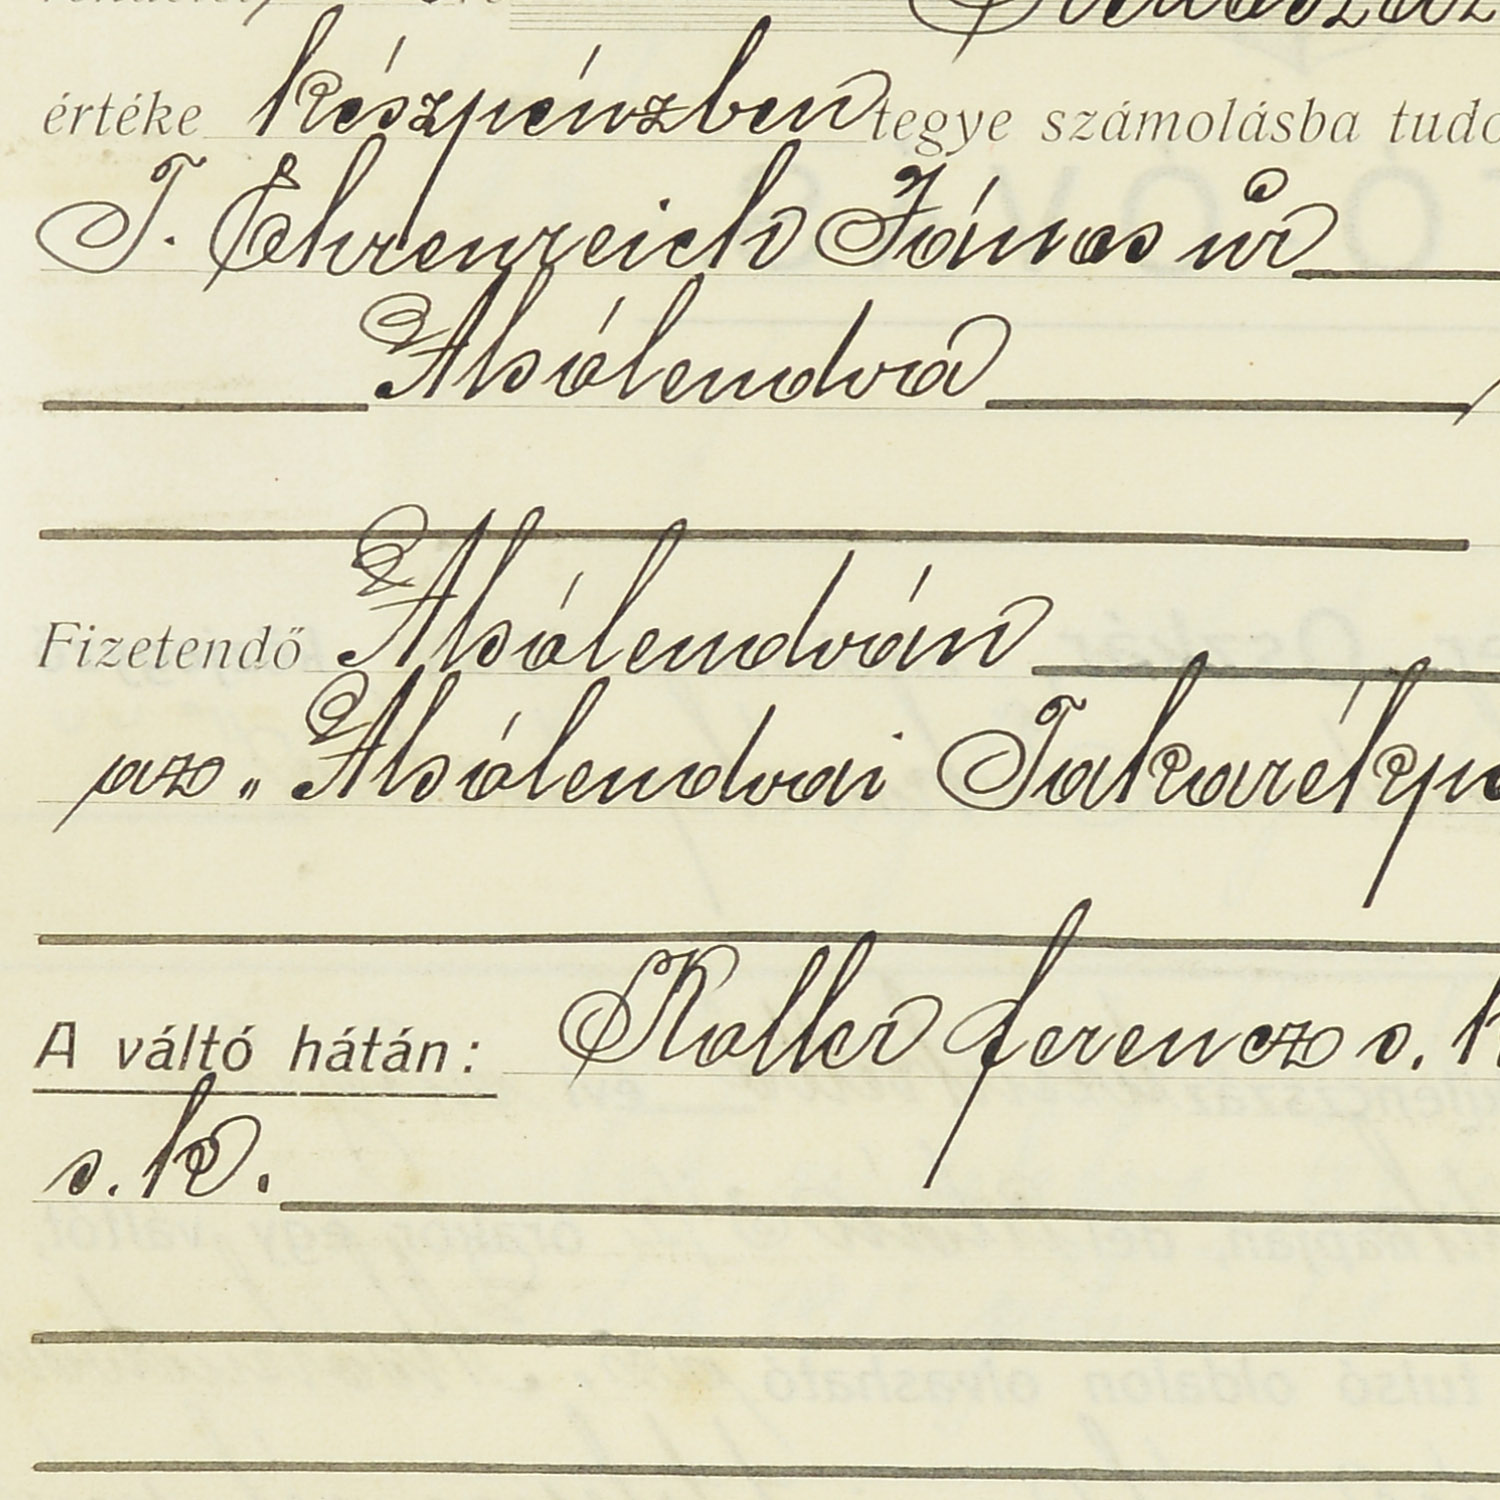 értéke készpénzben tegye számolásba tudo
T. Ehrenreich János úr
Alsólendva
Fizetendő Alsólendván
az „Alsólendvai Takarékp
A váltó hátán: Koller ferencz s. k
s. k.